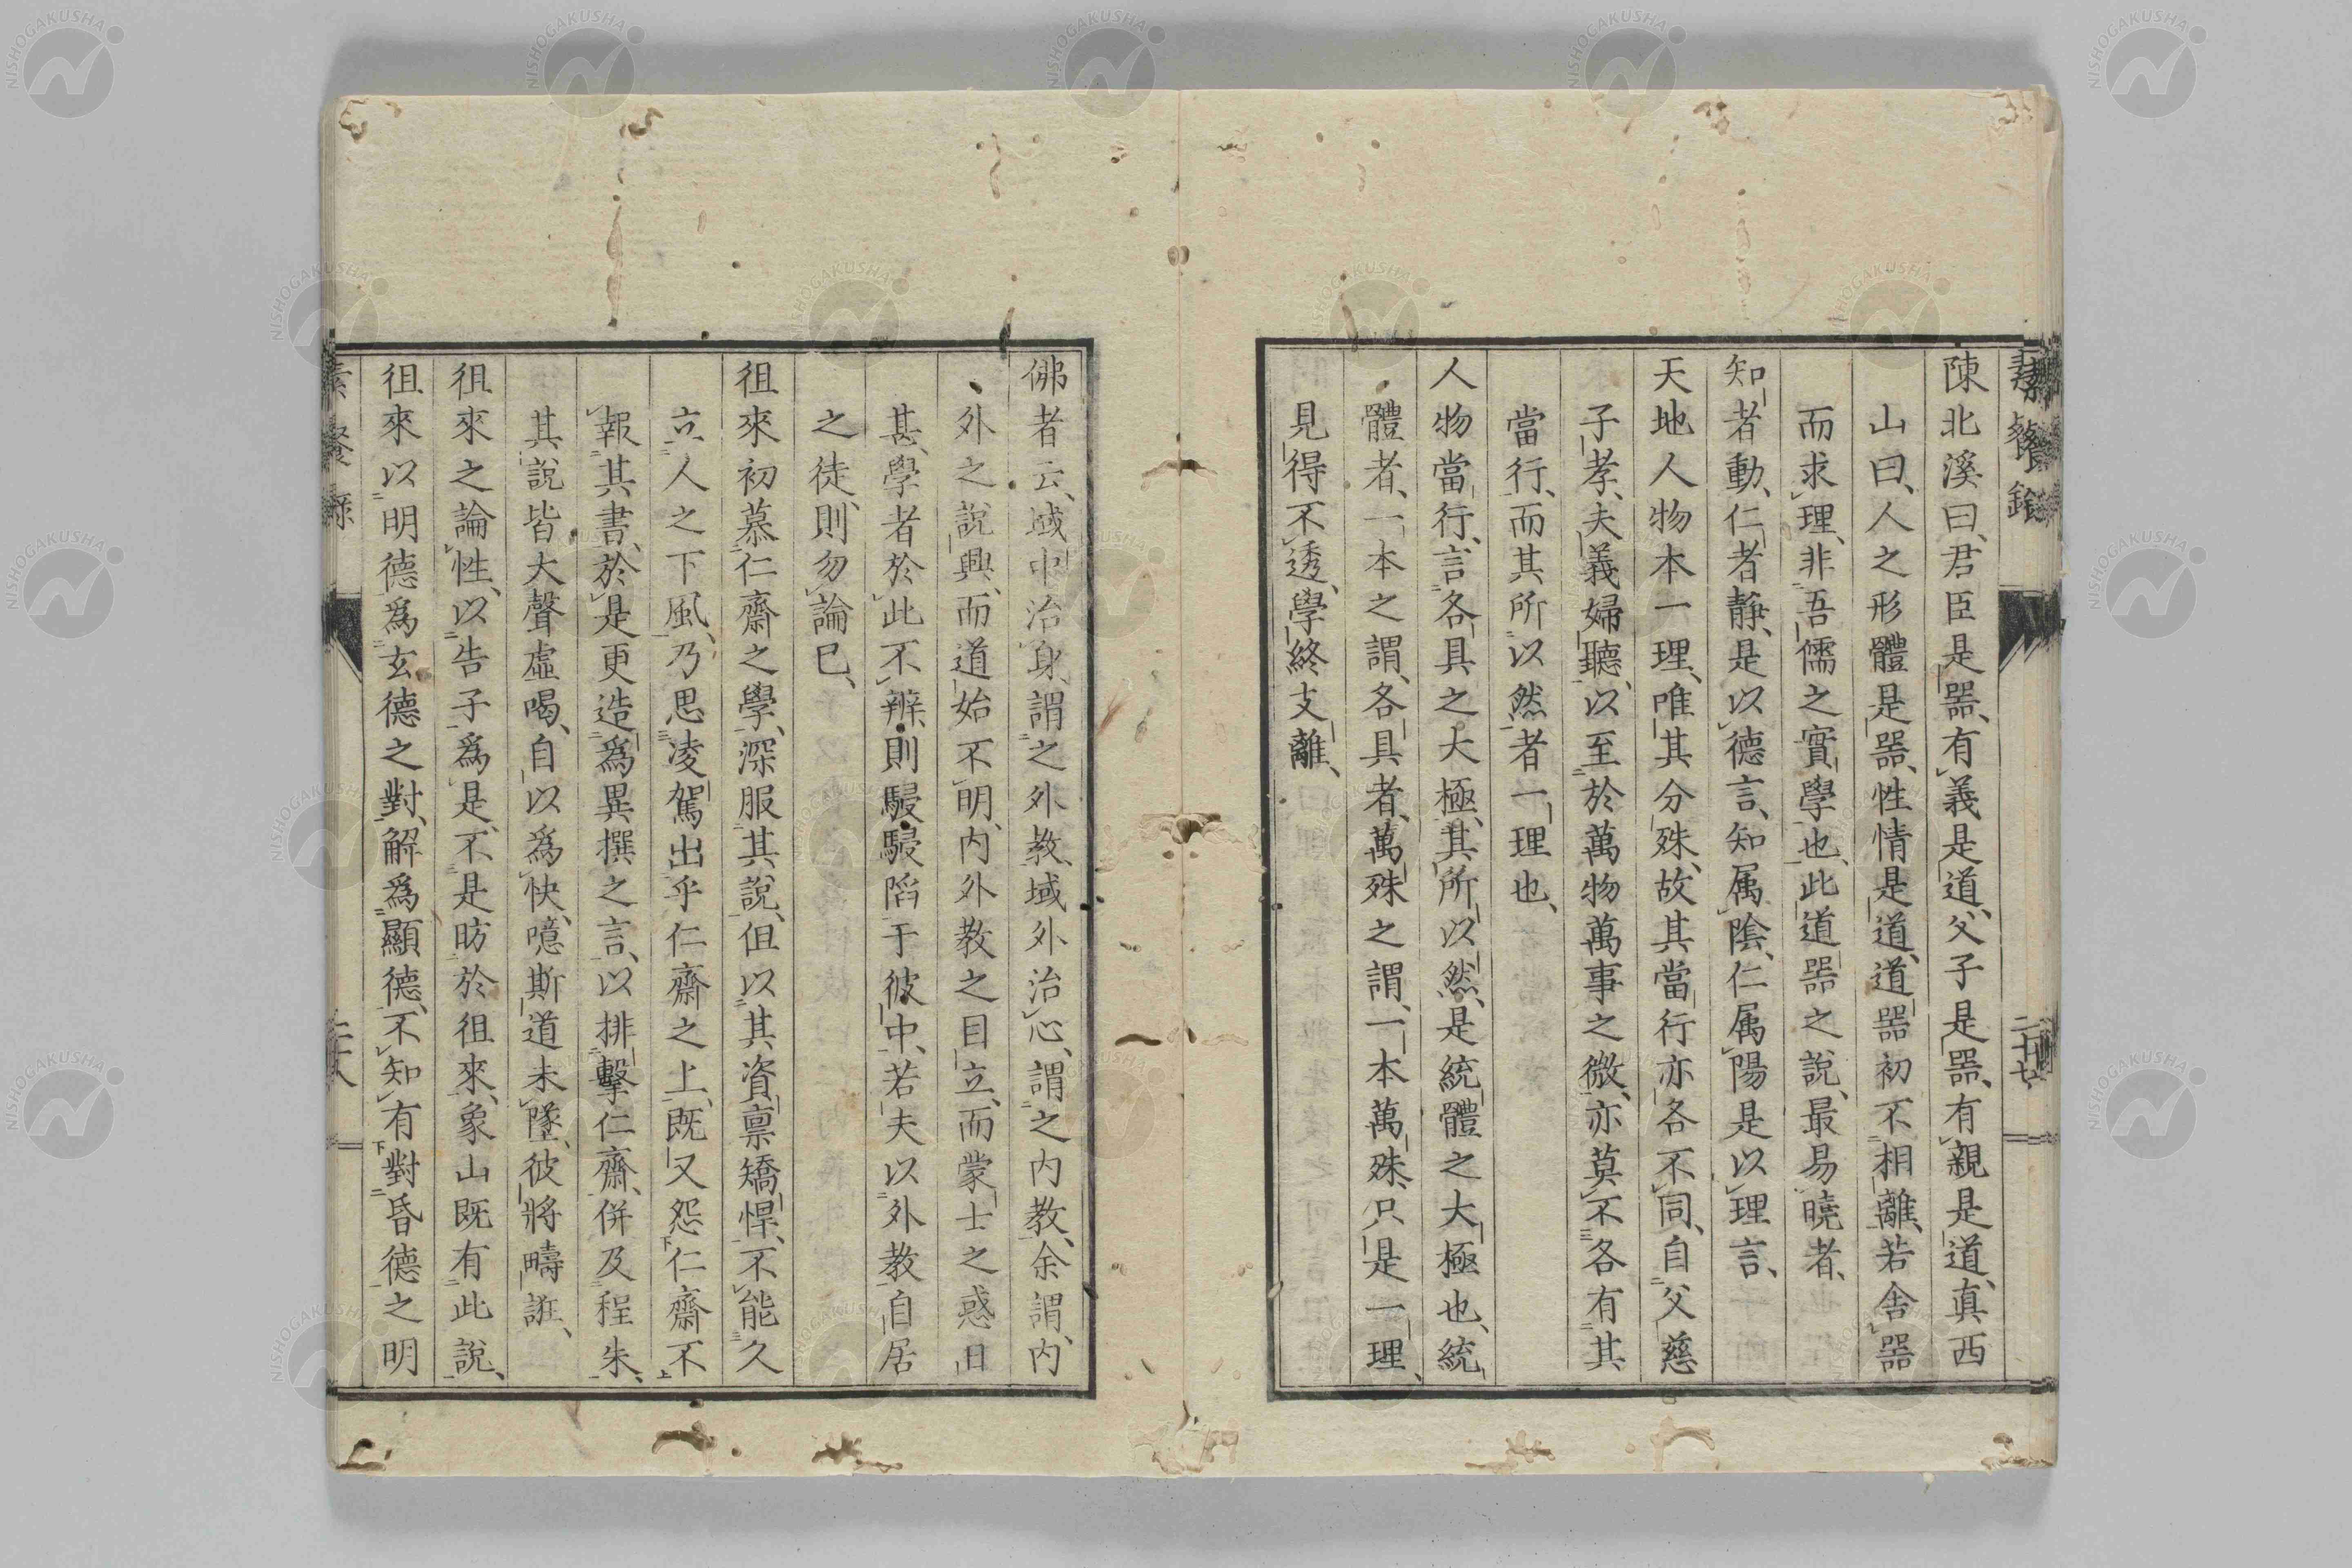 陳北溪曰、君臣是器、有義是道、父子是器、有親是道、真西
山曰、人之形體是器、性情是道、道器初不相離、若舍器
而求理、非吾儒之實學也、此道器之說、最易曉者、
知者動、仁者靜、是以德言、知属陰、仁属陽、是以理言、
天地人物本一理、唯其分殊、故其當行亦各不同、自父慈
子孝、夫義婦聽、以至於萬物萬事之微、亦莫不各有其
當行、而其所以然者一理也、
人物當行、言各具之大極、其所以然、是統體之大極也、統
體者、一本之謂、各具者、萬殊之謂、一本萬殊、只是一理、
見得不透、學終支離、
佛者云、域中治身、謂之外教、域外治心、謂之内教、余謂、内
外之說興、而道始不明、内外教之目立、而蒙士之惑日
甚、學者於此不辨、則駸駸陷于彼中、若夫以外教自居
之徒、則勿論已、
徂來初慕仁齋之學、深服其說、但以其資禀矯悍、不能久
立人之下風、乃思凌駕出乎仁齋之上、既又怨仁齋不
報其書、於是更造爲異撰之言、以排擊仁齋、併及程朱、
其說皆大聲虛喝、自以爲快、噫斯道未墜、彼將疇誑、
徂來之論性、以告子爲是、不是昉於徂來、象山既有此說、
徂來以明德爲玄德之對、解爲顯德、不知有對昏德之明
二十七
二十八